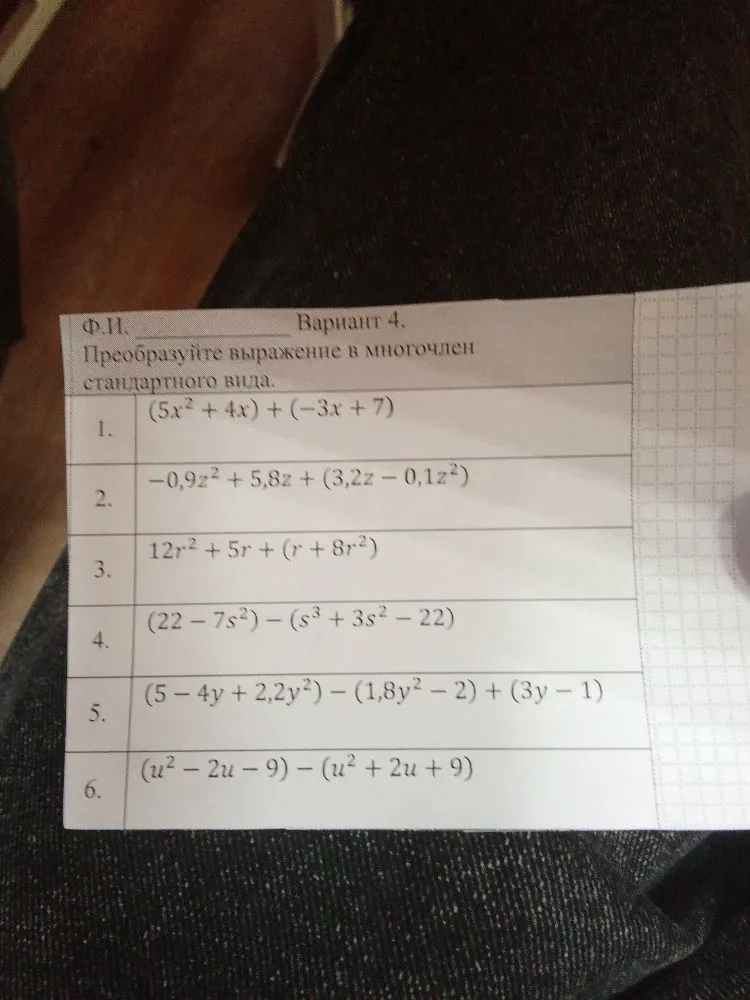 Ф.И. ____________ Вариант 4.
Преобразуйте выражение в многочлен
стандартного вида.
1. (5x² + 4x) + (−3x + 7)
2. −0,9z² + 5,8z + (3,2z − 0,1z²)
3. 12r² + 5r + (r + 8r²)
4. (22 − 7s²) − (s³ + 3s² − 22)
5. (5 − 4y + 2,2y²) − (1,8y² − 2) + (3y − 1)
6. (u² − 2u − 9) − (u² + 2u + 9)